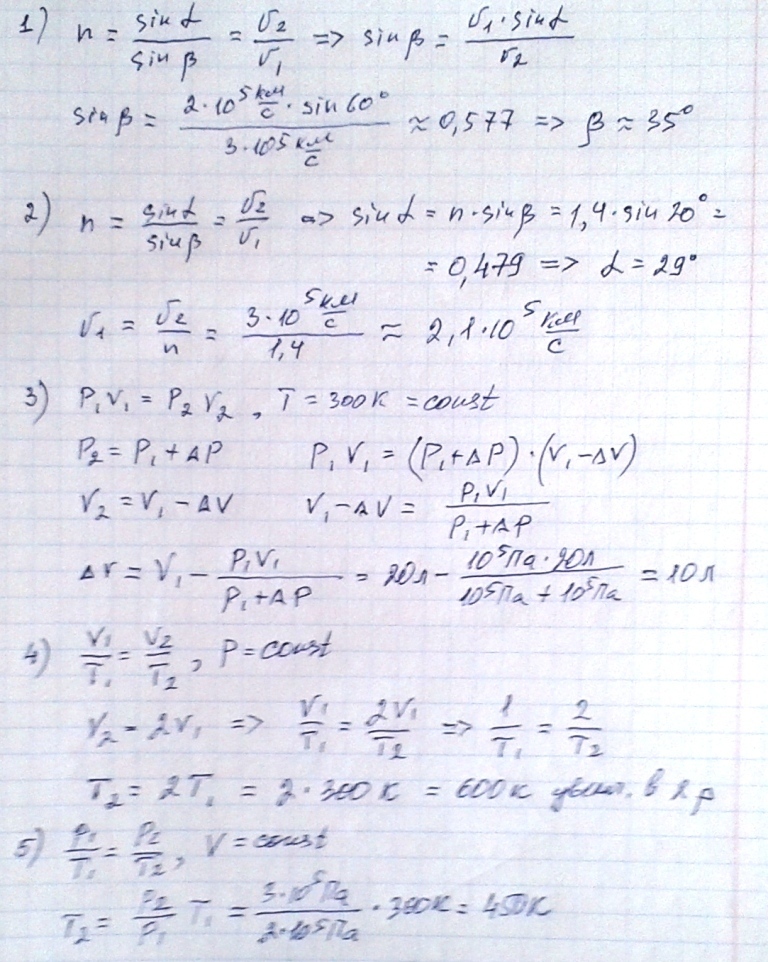 1) n = sin α / sin β = v₂ / v₁ => sin β = v₁ · sin α / v₂
sin β = 2·10⁵ км/с · sin 60° / 3·10⁵ км/с ≈ 0,577 => β ≈ 35°
2) n = sin α / sin β = v₂ / v₁ => sin α = n · sin β = 1,4 · sin 20° =
= 0,479 => α = 29°
v₁ = v₂ / n = 3·10⁵ км/с / 1,4 ≈ 2,1·10⁵ км/с
3) P₁V₁ = P₂V₂, T = 300К = const
P₂ = P₁ + ΔP P₁V₁ = (P₁+ΔP)·(V₁-ΔV)
V₂ = V₁ - ΔV V₁ - ΔV = P₁V₁ / P₁+ΔP
ΔV = V₁ - P₁V₁ / P₁+ΔP = 20л - 10⁵Па·20л / 10⁵Па + 10⁵Па = 10л
4) V₁/T₁ = V₂/T₂, P = const
V₂ = 2V₁ => V₁/T₁ = 2V₁/T₂ => 1/T₁ = 2/T₂
T₂ = 2T₁ = 2·300К = 600К увел. в 2 р
5) P₁/T₁ = P₂/T₂, V = const
T₂ = P₂/P₁ T₁ = 3·10⁵Па / 2·10⁵Па · 300К = 450К